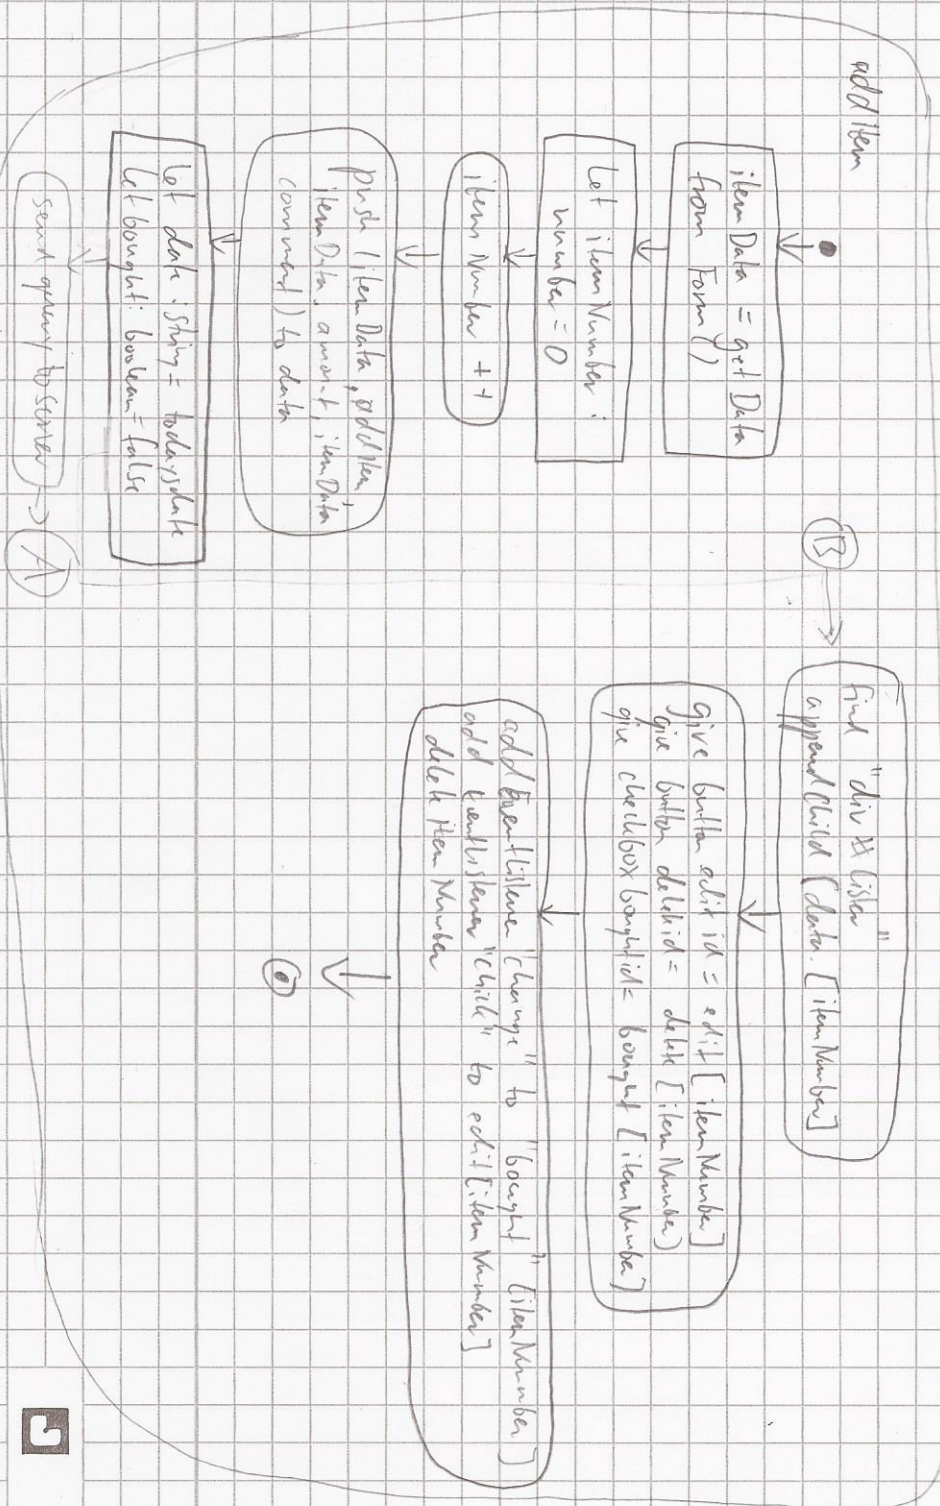 addItem
itemData = getData
from Form()
Let itemNumber :
number = 0
itemNumber ++
push (itemData, addItem,
itemData, amount, itemData
comment) to data
let date : String = todaysdate
let bought : boolean = false
send query to server
A
B
find "div #Lister"
appendChild (data. [itemNumber]
give button edit id = edit [itemNumber]
give button delete id = delete [itemNumber)
give checkbox bought id = bought [itemNumber]
addEventListener "change" to "bought" [itemNumber]
add EventListener "click" to edit [itemNumber]
delete itemNumber